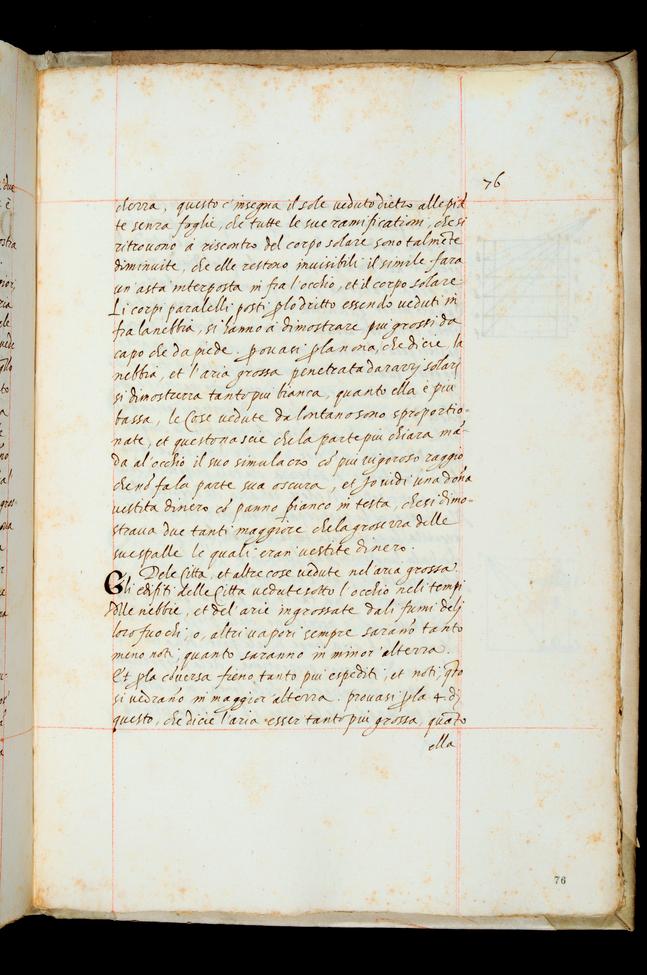 76
cterra, questo c'insegna il sole veduto dietro alle pia
te senza foglie, che tutte le sue ramificationi, che si
ritrovono a riscontro del corpo solare sono talmẽte
diminuite, che elle restono invisibili il simile fara
un'asta interposta in fra l'occhio, et il corpo solare
Li corpi paralelli posti ꝑ lo dritto essendo veduti in
fra la nebbia, si hanno a dimostrare piu grossi da
capo che da piede. provasi ꝑ la nona, che dicie, la
nebbia, et l'aria grossa penetrata da razzi solari
si dimosterra tanto piu bianca, quanto ella è piu
bassa, le Cose vedute da lontano sono sproportio-
nate, et questo nascie che la parte piu chiara mã-
da al occhio il suo simulacro cõ piu vigoroso raggio
che nõ fa la parte sua oscura, et Jo vidi una dõna
vestita di nero cõ panno bianco in testa, che si dimo-
strava due tanti maggiore che la grosezza delle
sue spalle le quali eran vestite di nero.
Dele Citta, et altre cose vedute nel aria grossa.
Gli edifiti delle Citta vedute sotto l'occhio neli tempi
delle nebbie, et del'arie ingrossate dali fumi deli
loro fuochi, o, altri vapori sempre sarano tanto
meno noti, quanto saranno in minor'alterra.
Et ꝑ la cõversa fieno tanto piu espediti, et noti, qto
si vedrano in maggior'alterra. provasi ꝑ la 4. di
questo, che dicie l'aria esser tanto piu grossa, quãto
ella
76